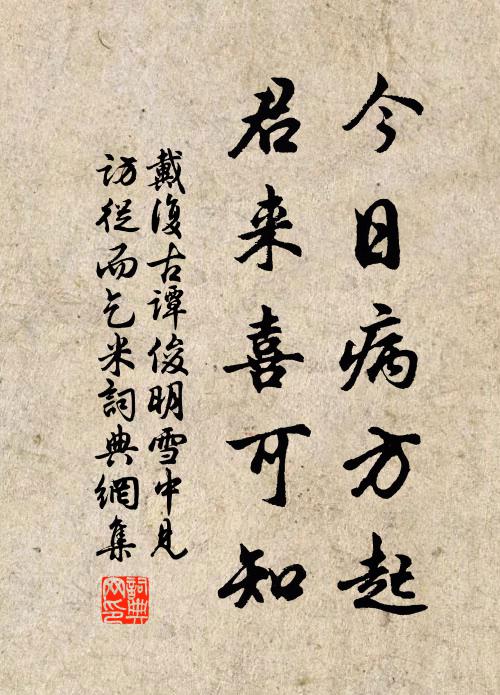 今日病方起
君来喜可知
戴復古譚俊明雪中見
訪從而乞米詞典網集
詞典
网印